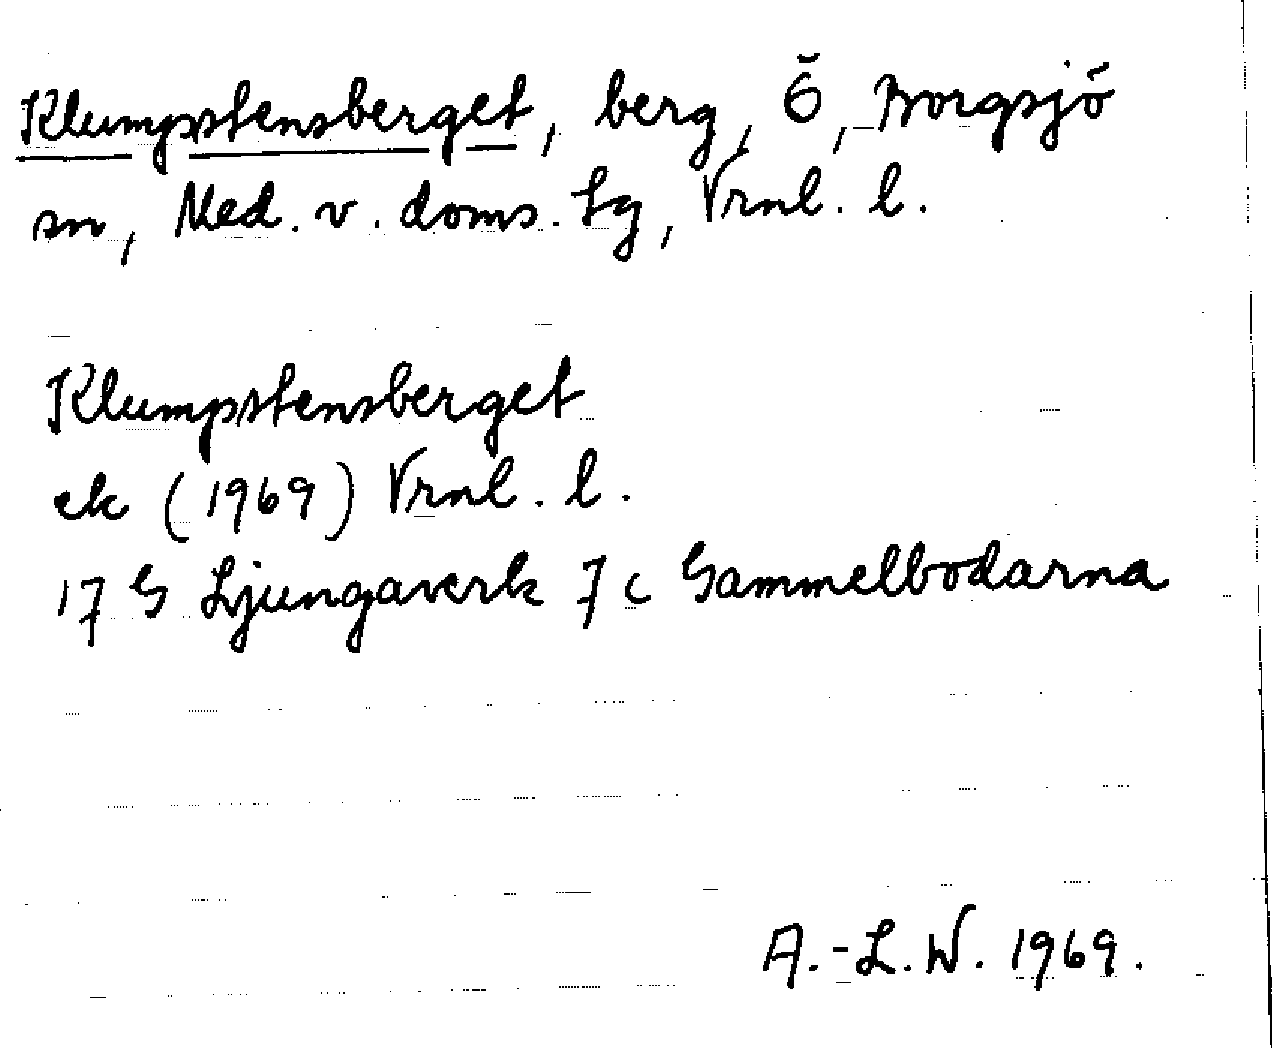 Klumpstensberget, berg, Ö, Borgsjö
sn, Med. v. doms. tg, Vrnl. l.
Klumpstensberget
ek (1969) Vrnl. l.
17 G Ljungaverk 7 c Gammelbodarna
A.-L. W. 1969.